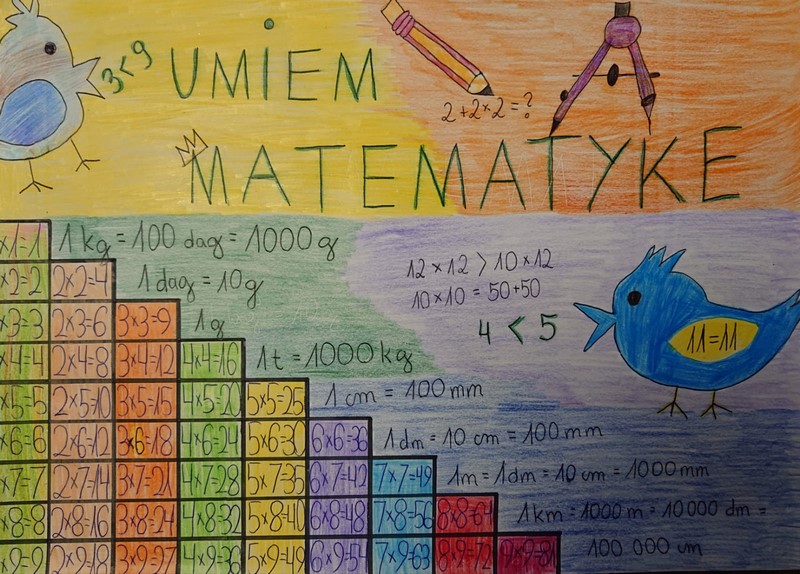 3<9
UMiEM
2+2×2=?
MATEMATYKE
×1=1
1 kg = 100 dag = 1000 g
×2=2 2×2=4
1 dag = 10 g
12×12 > 10×12
10×10 = 50+50
4 < 5
11=11
×3=3 2×3=6 3×3=9
1 g
×4=4 2×4=8 3×4=12 4×4=16
1 t = 1000 kg
×5=5 2×5=10 3×5=15 4×5=20 5×5=25
1 cm = 100 mm
×6=6 2×6=12 3×6=18 4×6=24 5×6=30 6×6=36
1 dm = 10 cm = 100 mm
×7=7 2×7=14 3×7=21 4×7=28 5×7=35 6×7=42 7×7=49
1m = 1dm = 10 cm = 1000 mm
×8=8 2×8=16 3×8=24 4×8=32 5×8=40 6×8=48 7×8=56 8×8=64
1 km = 1000 m = 10 000 dm =
×9=9 2×9=18 3×9=27 4×9=36 5×9=49 6×9=54 7×9=63 8×9=72 9×9=81
100 000 cm